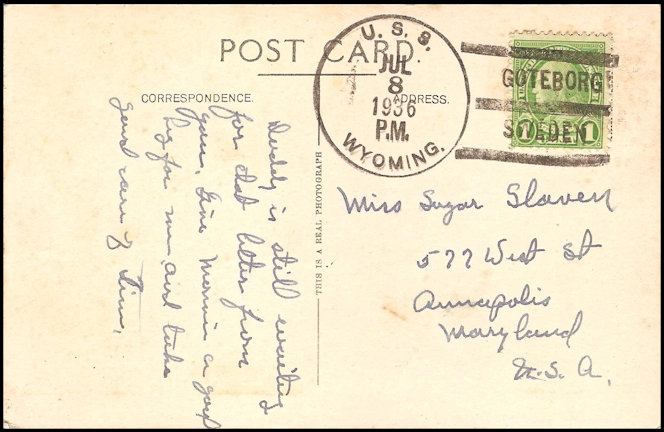 POST CARD
CORRESPONDENCE.
ADDRESS.
U.S.S.
JUL
8
1936
P.M.
WYOMING.
GOTEBORG
SWEDEN
1 1
THIS IS A REAL PHOTOGRAPH
Daddy is still waiting
for that letter from
you. Give Mommie a good
hug for me and take
good care of
Miss Sugar Slaven
577 West St
Annapolis
Maryland
U.S.A.